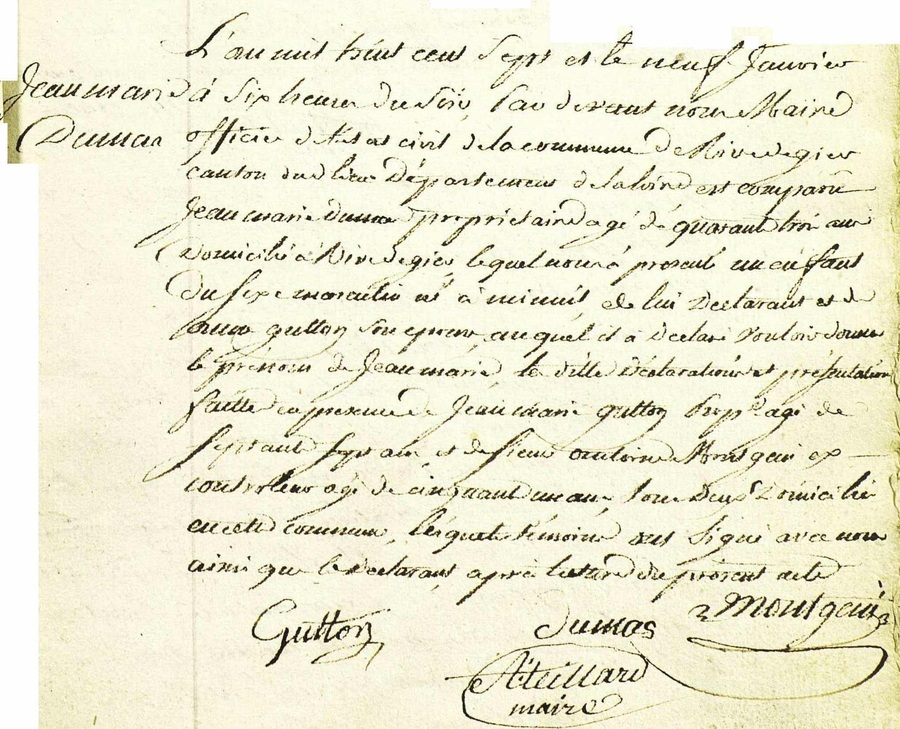 Jean marie
Dumas
L'an mil huit cent Sept et le neuf Janvier
à Six heures du Soir, Par devant nous Maire
officier de l'état civil de la commune de Rive de gier
canton du dit lieu Département de la loire est comparû
Jean marie Dumas propriétaire agé de quarante trois ans
Domicilié à Rive de gier, lequel nous à presenté un enfant
du Sexe masculin né à minuit, de lui Déclarant et de
guitton Son epouse, auquel il à Déclaré vouloir donner
le prénom de Jean marie, les dittes Déclarations et présentation
faitte en presence de Jean Marie guitton Prop.re agé de
Septante Sept ans, et de Sieur antoine Montgeni ex
controlleur agé de cinquante un ans, tous Deux Domiciliés
en cette commune, lesquels témoins ont Signé avec nous
ainsi que le Déclarant, après lecture du présent acte
Guitton
Dumas
Montgeni
Teillard
maire